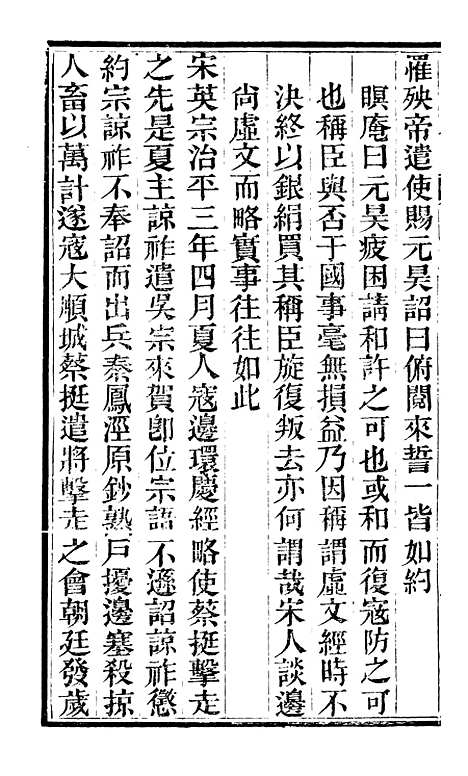 罹殃帝遣使賜元昊詔曰俯閱來誓一皆如約
瞑庵曰元昊疲困請和許之可也或和而復寇防之可
也稱臣與否于國事毫無損益乃因稱謂虛文經時不
決終以銀絹買其稱臣旋復叛去亦何謂哉宋人談邊
尙虛文而略實事往往如此
宋英宗治平三年四月夏人寇邊環慶經略使蔡挺擊走
之先是夏主諒祚遣吳宗來賀卽位宗語不遜詔諒祚懲
約宗諒祚不奉詔而出兵秦鳳涇原鈔熟戸擾邊塞殺掠
人畜以萬計遂寇大順城蔡挺遣將擊走之會朝廷發歲